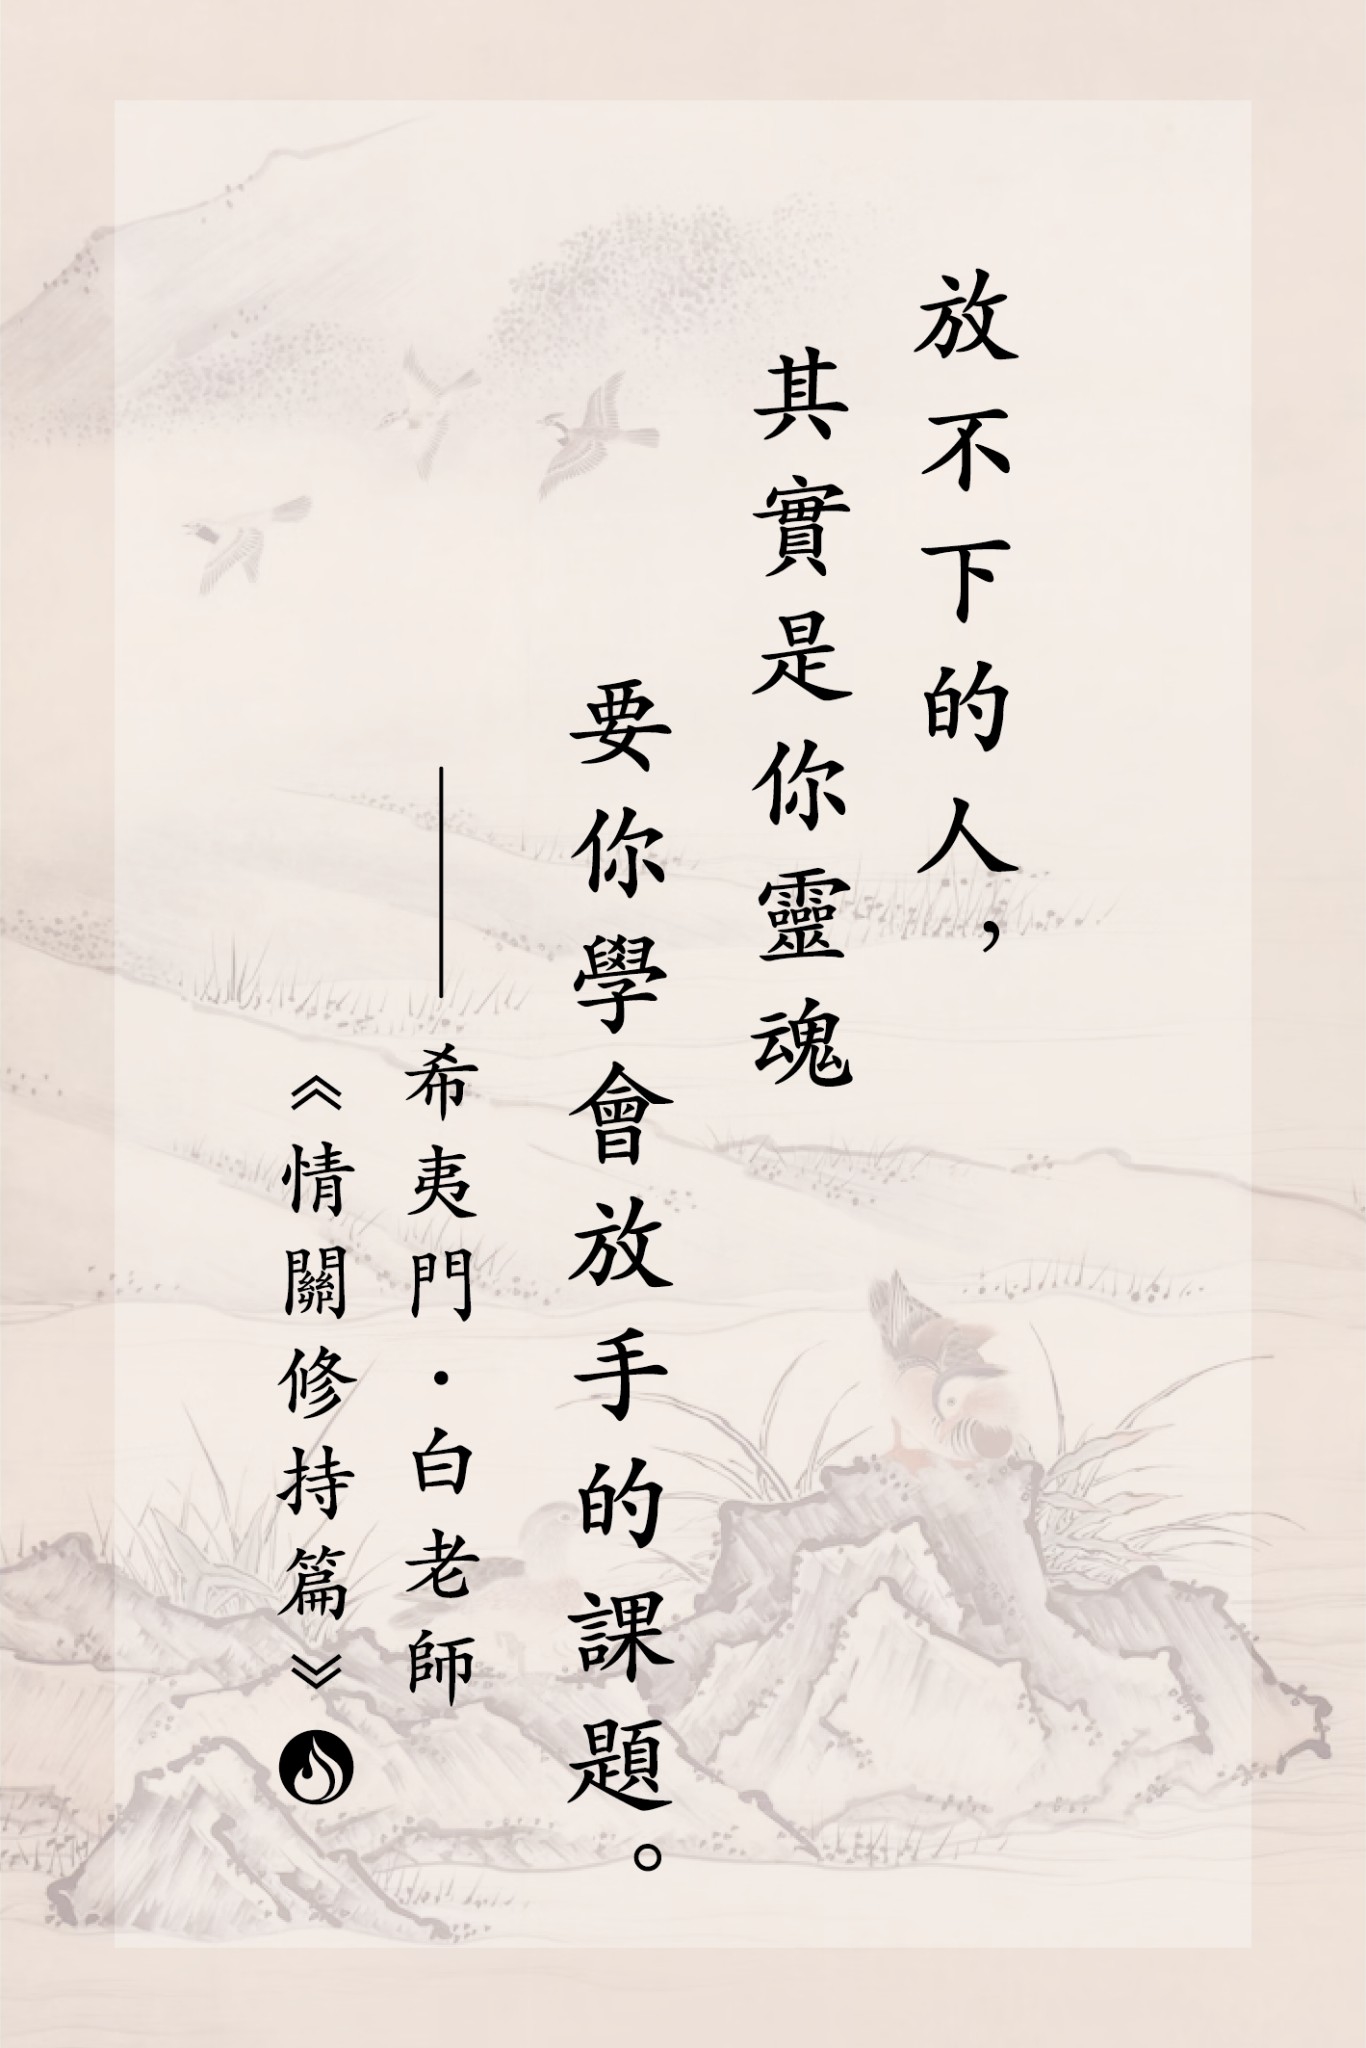 放不下的人，
其實是你靈魂
要你學會放手的課題。
——希夷門·白老師
《情關修持篇》